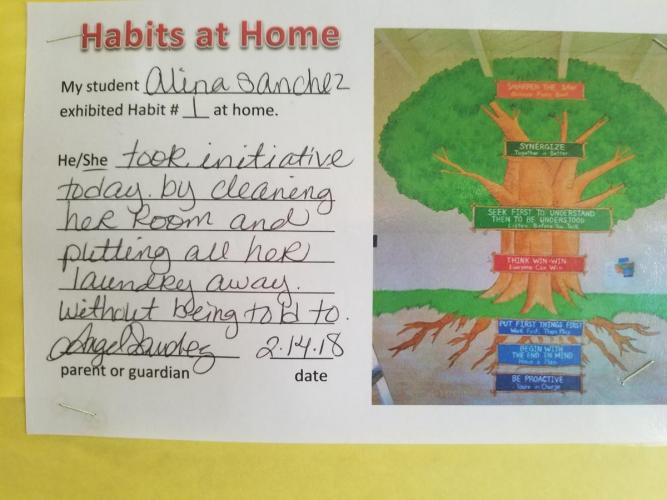 Habits at Home
My student Alina Sanchez
exhibited Habit # 1 at home.
He/She took initiative
today. by cleaning
her Room and
putting all her
laundry away.
without being told to.
Angel Sanchez 2.14.18
parent or guardian date
SHARPEN THE SAW
Balance Feels Best
SYNERGIZE
Together is Better
SEEK FIRST TO UNDERSTAND
THEN TO BE UNDERSTOOD
Listen Before You Talk
THINK WIN-WIN
Everyone Can Win
PUT FIRST THINGS FIRST
Work First, Then Play
BEGIN WITH
THE END IN MIND
Have a Plan
BE PROACTIVE
You're in Charge